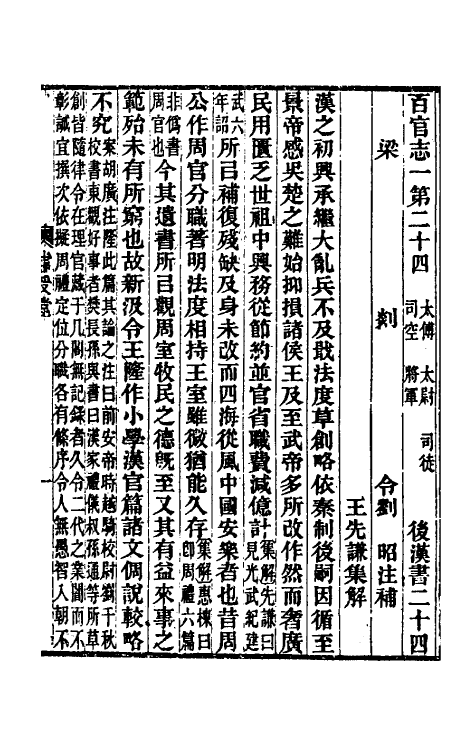 百官志一第二十四 太傅 太尉 司徒 司空 將軍 後漢書二十四
梁 剡 令劉 昭注補
王先謙集解
漢之初興承繼大亂兵不及戢法度草創略依秦制後嗣因循至
景帝感吳楚之難始抑損諸侯王及至武帝多所改作然而奢廣
民用匱乏世祖中興務從節約並官省職費減億計集解先謙曰見光武紀建
武六年詔所㠯補復殘缺及身未改而四海從風中國安樂者也昔周
公作周官分職著明法度相持王室雖微猶能久存集解惠棟曰即周禮六篇
非僞書周官也今其遺書所㠯觀周室牧民之德既至又其有益來事之
範殆未有所窮也故新汲令王隆作小學漢官篇諸文倜說較略
不究案胡廣注隆此篇其論之注曰前安帝時越騎校尉劉千秋校書東觀好事者樊長孫與書曰漢家禮儀叔孫通等所草
創皆隨律令在理官藏于几閣無記錄者久令二代之業闇而不彰誠宜撰次依擬周禮定位分職各有條序令人無愚智入朝不
虛受堂
一